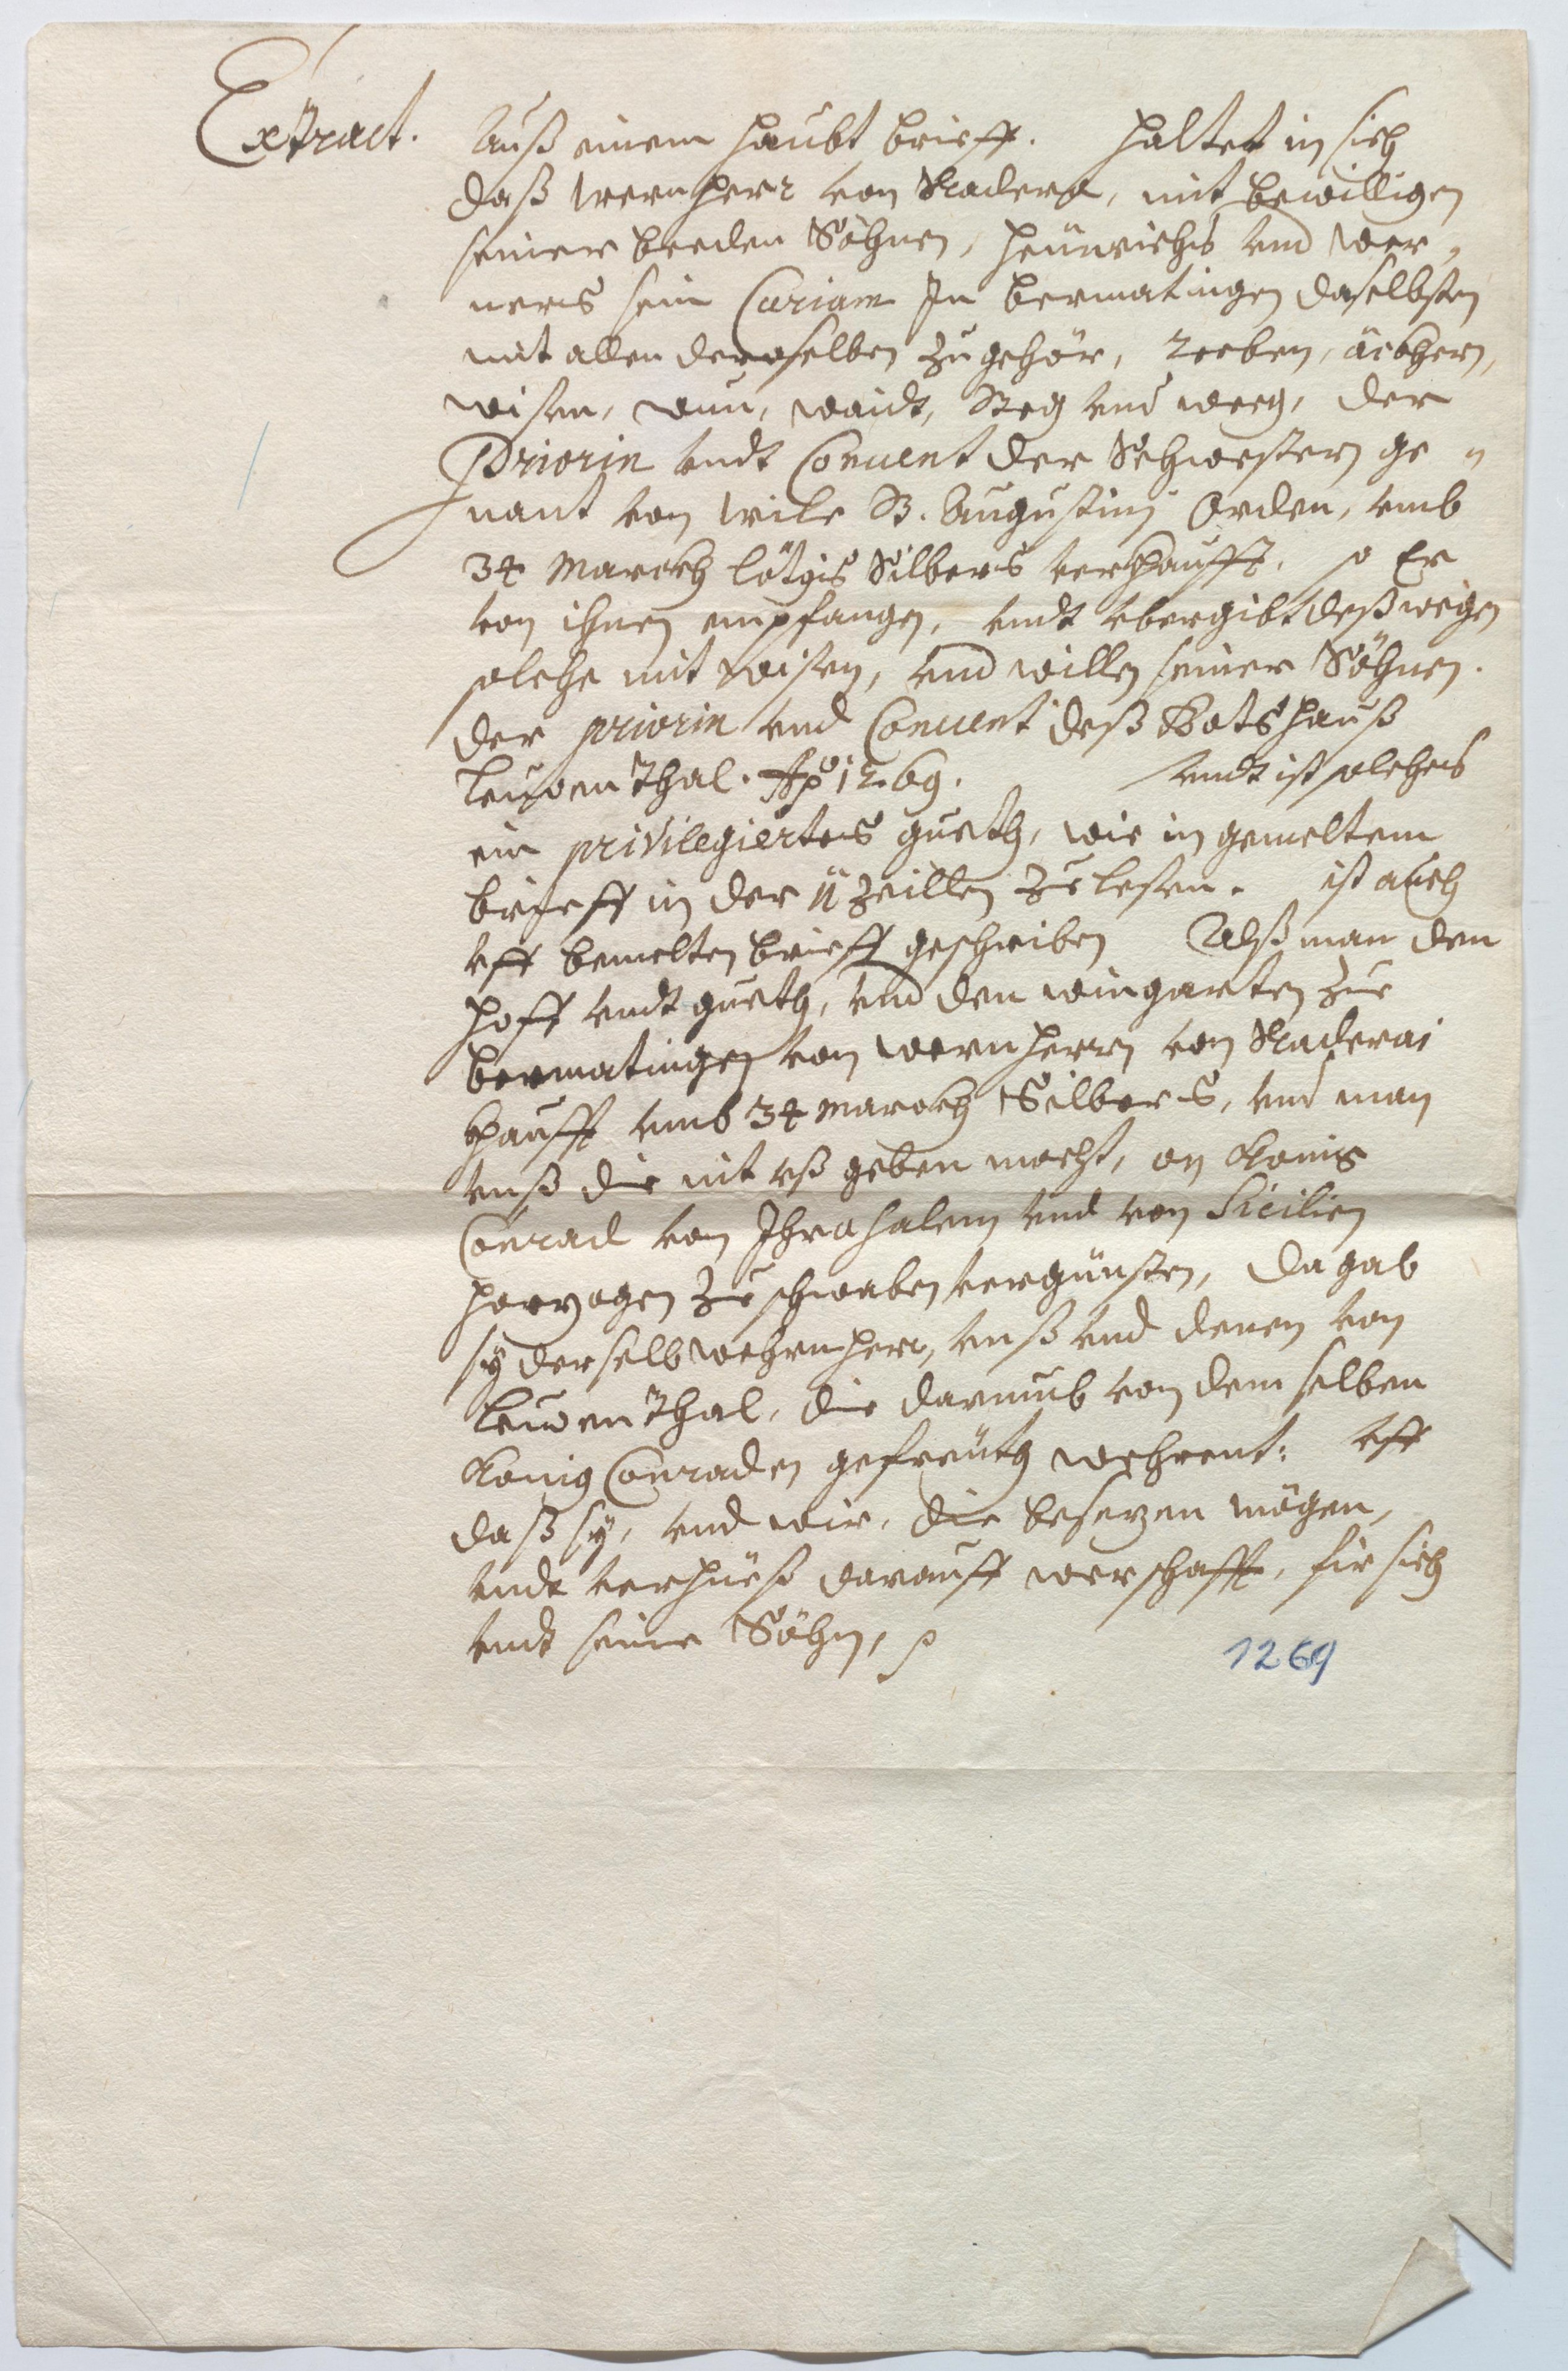 Extract. Auß einem haubt brieff. haltet in sich
daß Wernherr von Radera, mit bewilligen
seiner beeden Söhnen, Heinrichs vnd Wer„
ners sein Curiam In bermatingen daselbsten
mit allen derselben zu gehör, reeben, äckhern,
wisen, wun, waidt, Steg vnd weeg, der
Priorin vndt Conuent der Schwestern ge„
nant von Wile St. Augustini Orden, vmb
34 Marckh lötigs Silbers verkhaufft, so Er
von ihnen empfangen, vndt vbergibt deßwegen
solche mit wisen, vnd willen seiner Söhnen.
der priorin vnd Conuent deß Gotshauß
Leuwenthal. Ao 1269. vndt ist solches
ein privilegiertes gueth, wie in gemeltem
brieff in der 11 zeillen zue lesen. ist auch
vff bemelten brieff geschriben Alß man den
hoff vndt gueth, vnd den wingarten zue
bermatingen von Wernherrn von Raderai
khaufft vmb 34 marckh Silbers, vnd man
vnß die nit vß geben mocht, on Konig
Conrad von Jherusalem vnd von Sicilien
herzogen zue schwaben vergünsten, da gab
sy derselb Wehrnherr, vnß vnd denen von
Leuwenthal, die darumb von dem selben
Konig Conraden gefreüth wehrent: vff
daß sy, vnd wir, die besezen mögen,
vndt verhieß darauff werschafft, für sich
vndt seine Söhn,
1269